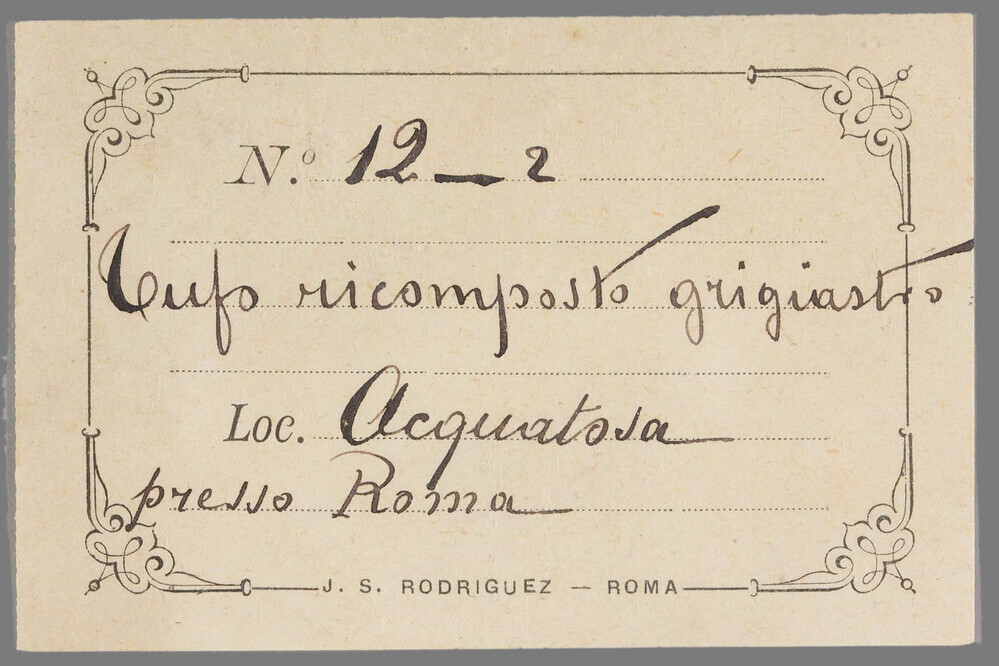 N.º 12 — 2
Tufo ricomposto grigiastro
Loc. Acquatosa
presso Roma
J. S. RODRIGUEZ — ROMA